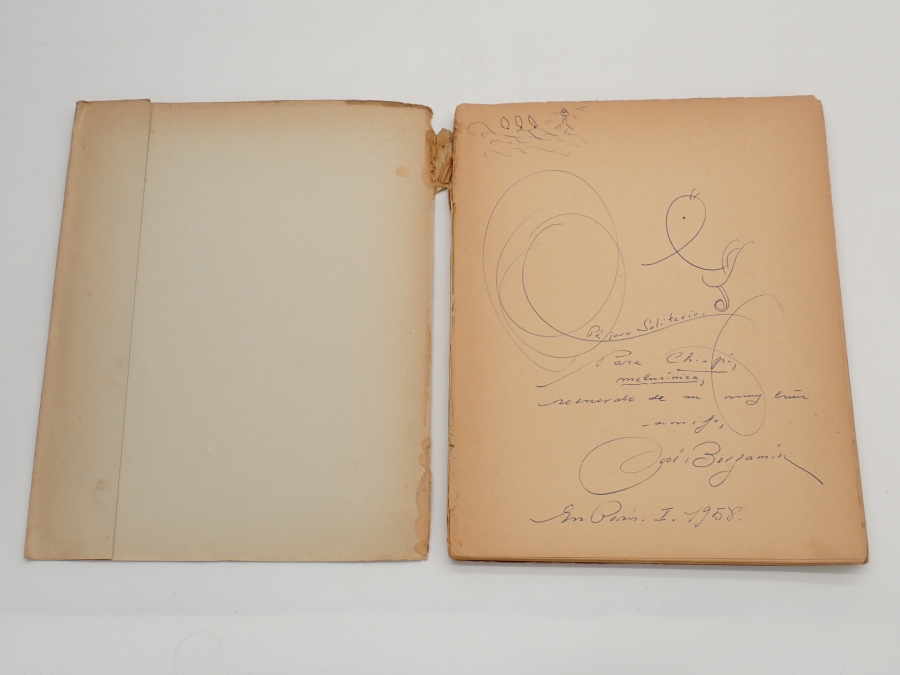 Pájaro Solitario.
Para
melusínica,
recuerdo de su muy buen
amigo,
José Bergamín
En París. I. 1958.